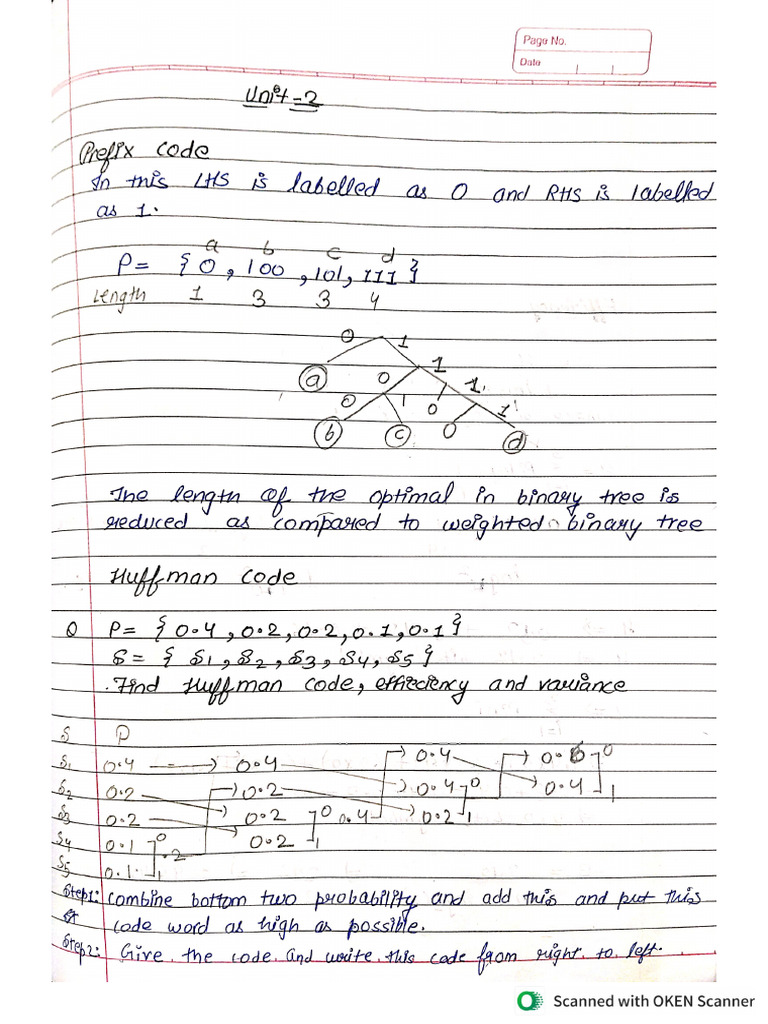 Page No.
Date
Unit-2
Prefix code
In this LHS is labelled as 0 and RHS is labelled
as 1.
a b c d
P = {0, 100, 101, 111}
Length 1 3 3 4
0 1
a 0 1
0 1 0 1
b c 0 1 d
The length of the optimal in binary tree is
reduced as compared to weighted binary tree
Huffman code
Q P = {0.4, 0.2, 0.2, 0.1, 0.1}
S = {S1, S2, S3, S4, S5}
Find Huffman code, effieciency and variance
S P
S1 0.4 → 0.4 0.4 0.6 0
S2 0.2 0.2 0.4 0 0.4 1
S3 0.2 0.2 0 0.4 0.2 1
S4 0.1 0 .2 0.2 1
S5 0.1 1
Step1: combine bottom two probability and add this and put this
code word as high as possible.
Step2: Give the code and write this code from right to left.
Scanned with OKEN Scanner